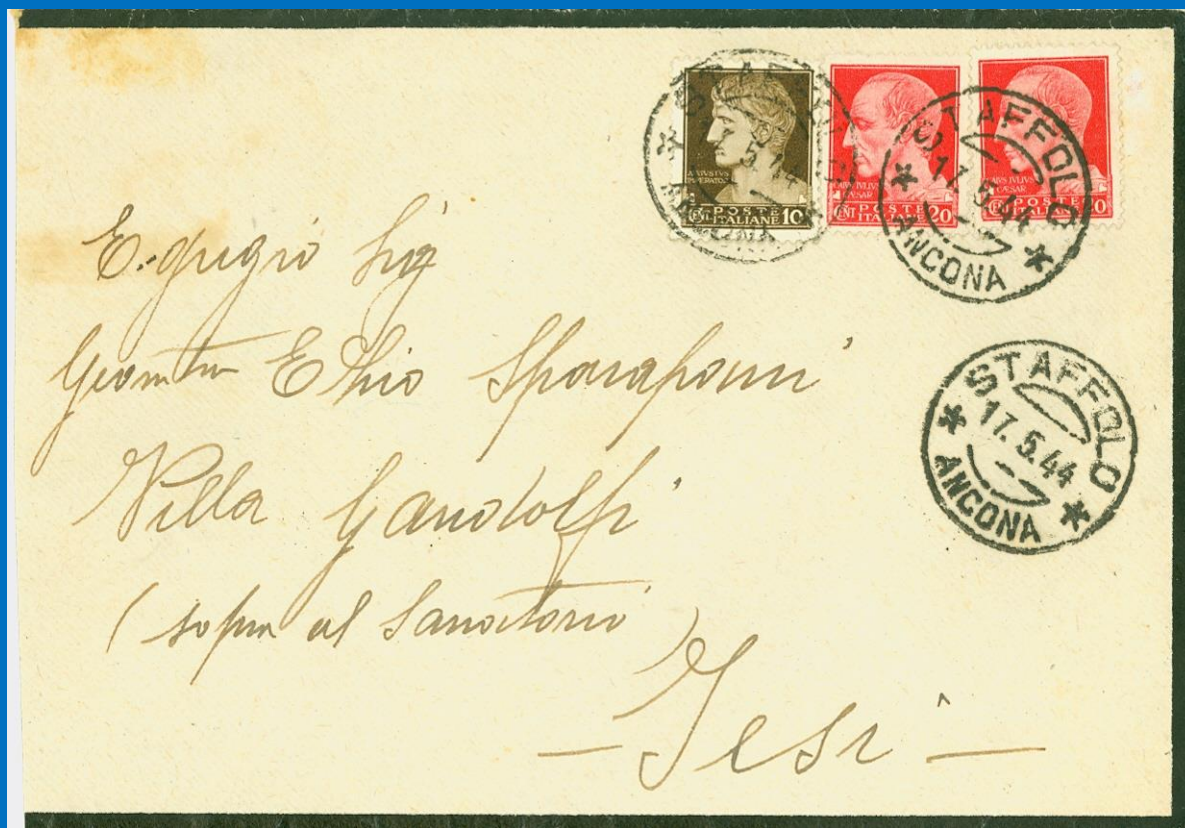 AVGVSTVS
IMPERATOR
CENT POSTE ITALIANE 10
CAIVS IVLIVS
CAESAR
CENT POSTE ITALIANE 20
CAIVS IVLIVS
CAESAR
CENT POSTE ITALIANE 20
STAFFOLO
17.5.44
ANCONA
STAFFOLO
17.5.44
ANCONA
Egregio Sig
Ezio Sparapani
Villa Gandolfi
(sopra al Sanatorio)
– Jesi –